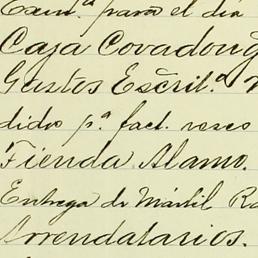 Exmª. para el día
Caja Covadong
Gastos Escrit.ª
dido pª. fact. reses
Tienda Alamo.
Entrega de Mártil Ra
Arrendatarios.